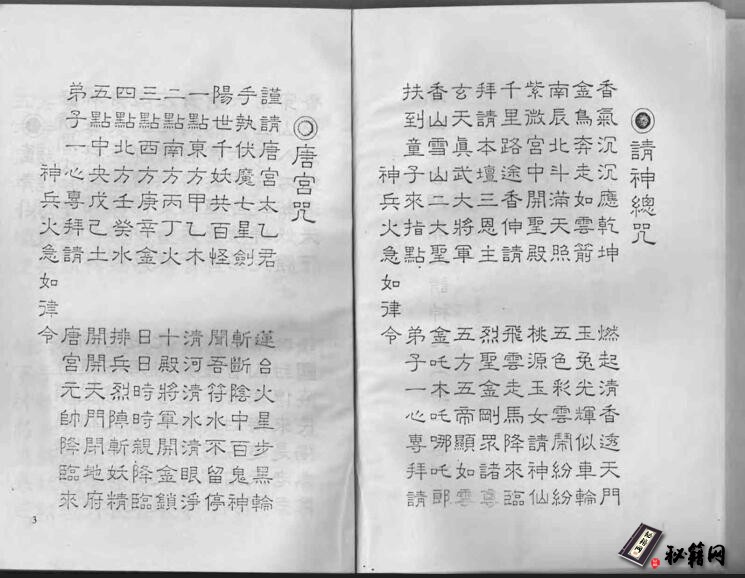 請神總咒
香氣沉沉應乾坤 燃起清香透天門
金鳥奔走如雲箭 玉兔光輝似車輪
南辰北斗滿天照 五色彩雲鬧紛紛
紫微宮中開聖殿 桃源玉女請神仙
千里路途香伸請 飛雲走馬降來臨
拜請本壇三恩主 烈聖金剛眾諸尊
玄天眞武大將軍 五方五帝顯如雲
香山雪山二大聖 金吒木吒哪吒郎
扶到童子來指點 弟子一心專拜請
神兵火急如律令
唐宮咒
謹請唐宮太乙君 蓮台火星步黑輪
手執伏魔七星劍 斬斷陰中百鬼神
陽世千妖共百怪 聞吾符水不留停
一點東方甲乙木 清河清水清眼淨
二點南方丙丁火 十殿將軍開金鎖
三點西方庚辛金 日日時時親降臨
四點北方壬癸水 排兵烈陣斬妖精
五點中央戊己土 開開天門閉地府
弟子一心專拜請 唐宮元帥降臨來
神兵火急如律令
3
秘籍网